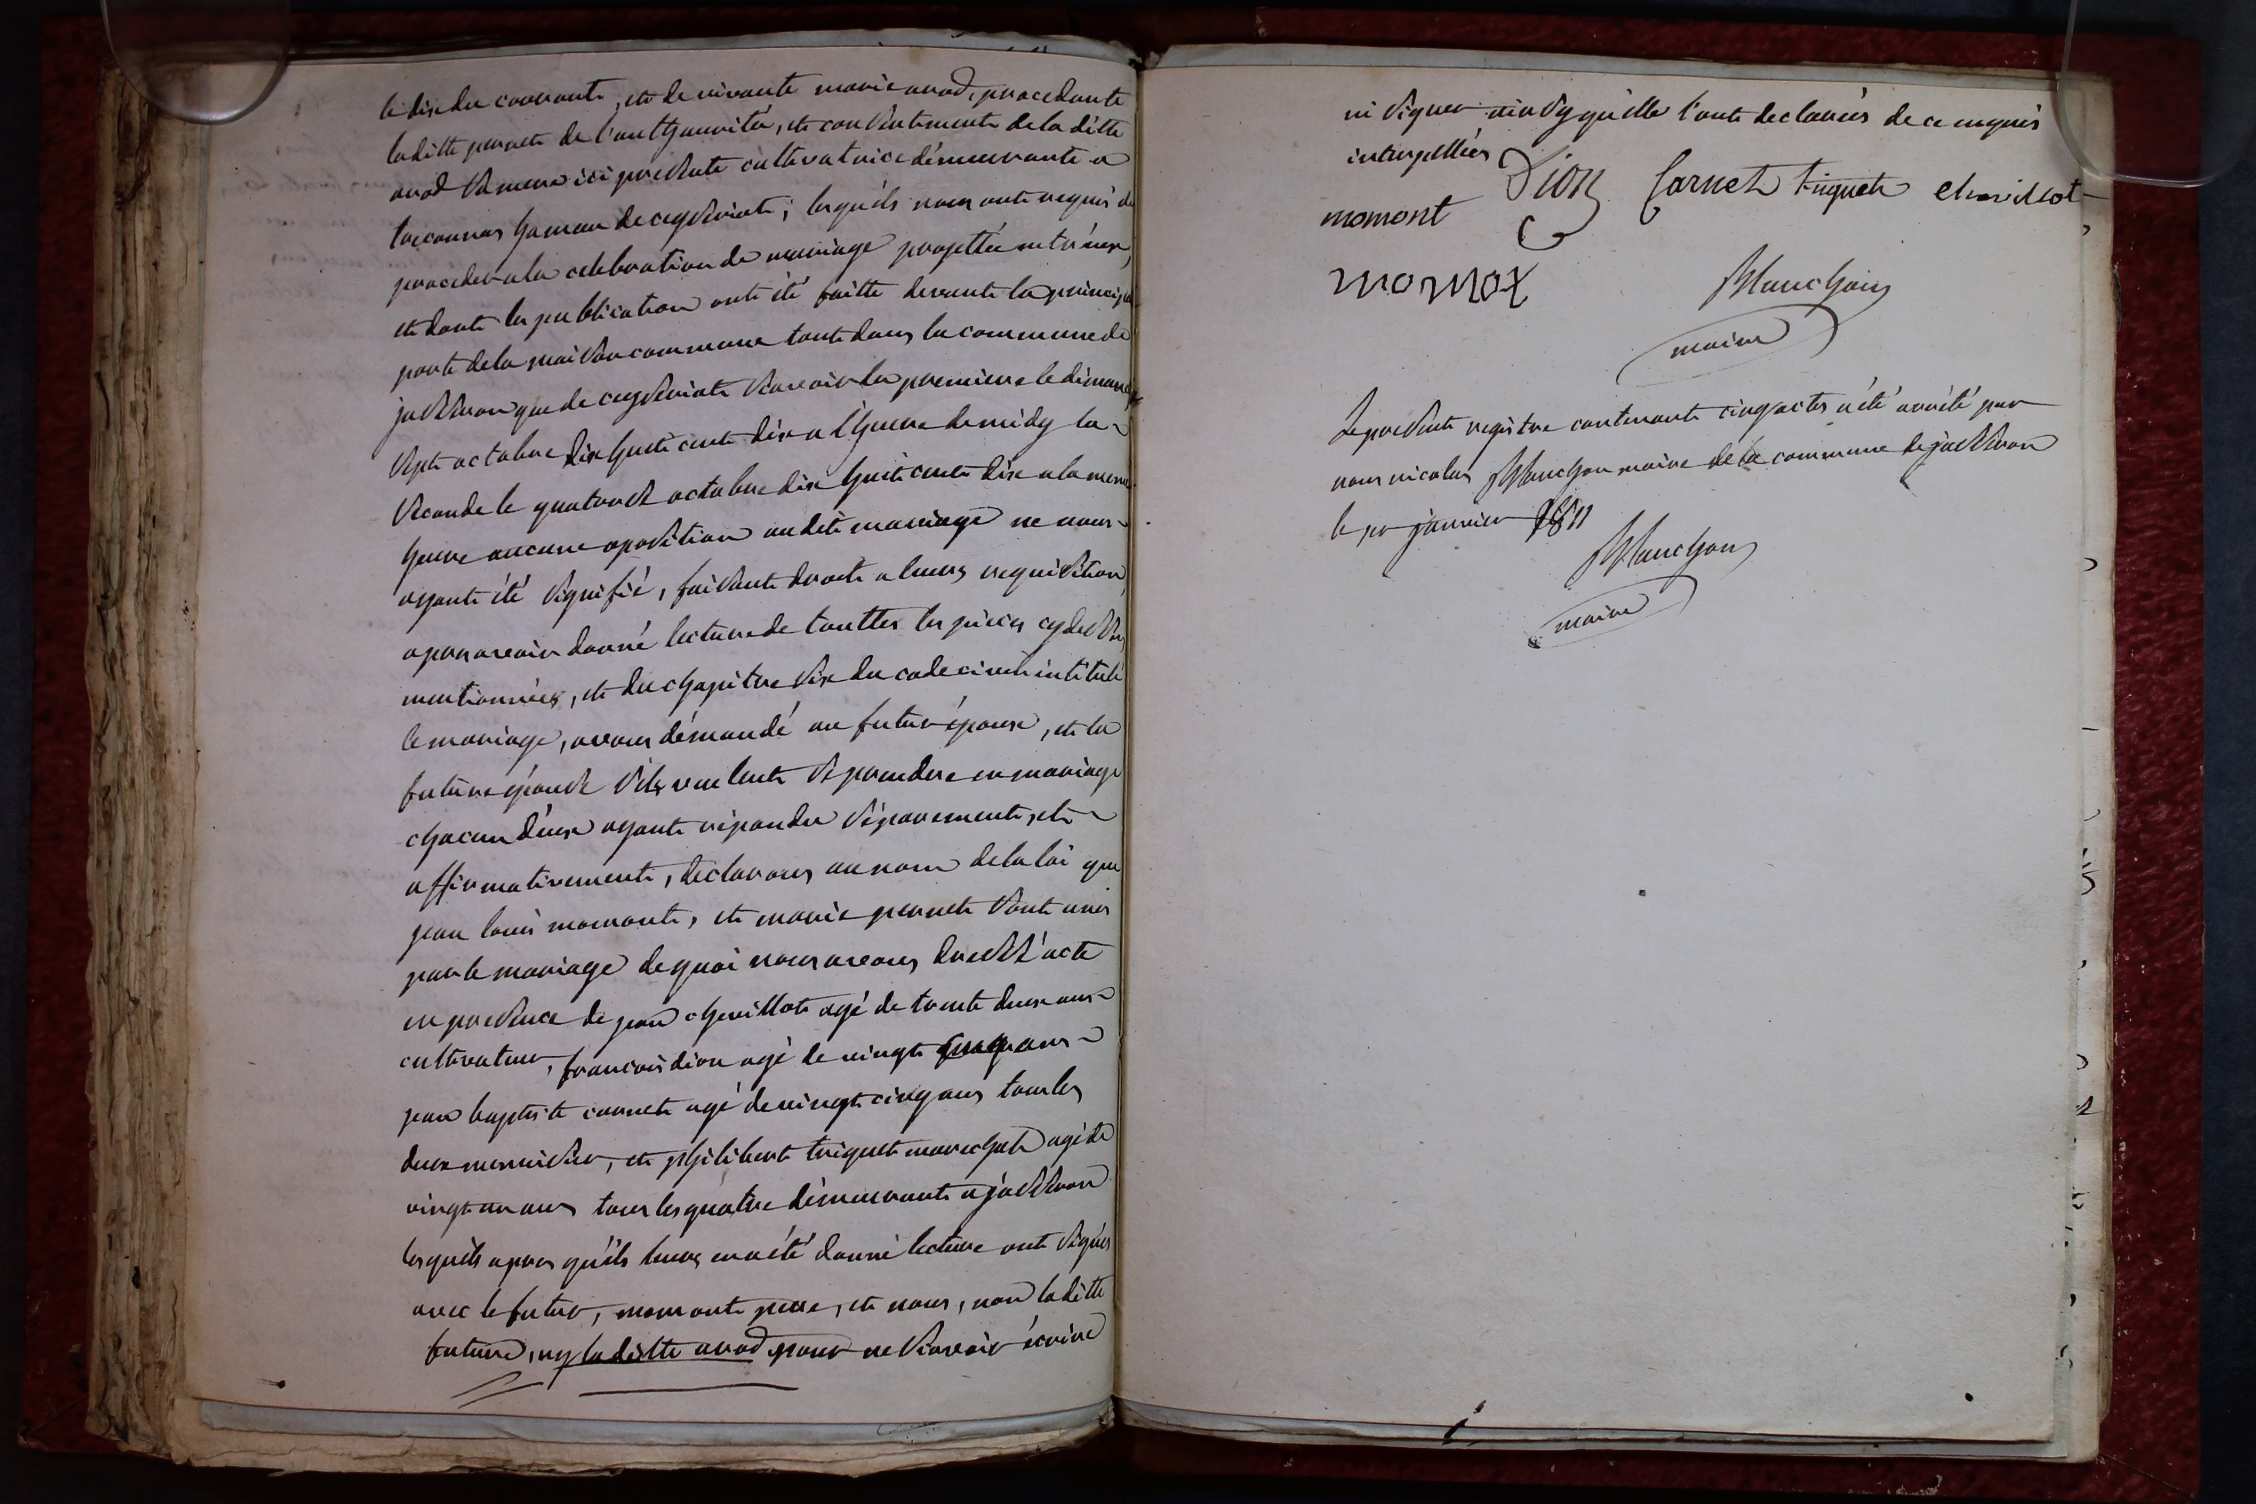 le dix du courante, et de vivante marie avod, procedante
laditte pernete de l'authaurité, et consentemente de la ditte
avod sa mere ici presente cultivatrice démeurante a
hameau de ceyseriate; lesquéls nous onte requis de
proceder a la celebration de mariage projettée entr'eux,
et donte les publication onte été faitte devante la principale
porte de la maison commune tante dans la commune de
jasseron que de ceyseriate savoir la premiere le dimanche
septe octobre dix huite cente dix a l'heure de midy la
seconde le quatorse octobre dix huite cente dix a la meme
heure aucune oposition audite mariage ne nous
ayante été signifié, faisante droite a leurs requisition,
apres avoir donné lecture de touttes les piéces cy dessus
mentionnées, et du chapitre six du code civile intitulé
le mariage, avons démandé au futur époux, et la
future épouse s'ils veulente se prendre en mariage
chacun d'eux ayante répondu séparemente, et
affirmativemente, declarons au nom de la loi que
jean louis momonte, et marie pernete sonte unis
par le mariage de quoi nous avons dressé l'acte
en presence de jean chevillote agé de trente deux ans
cultivateur, francois dion agé de vingte cinq ans
jean baptiste carnete agé de vingte cinq ans tous les
deux menuisier, et philiberte triquete marechale agé de
vingte un ans tous les quatre démeurante a jasseron
lesquéls apres qu'ils leurs en a été donné lecture onte signés
avec le futur, momonte pere, et nous, non laditte
future, ny la ditte avod pour ne savoir écrire
ni signer ainsy qu'elle l'onte declarées de ce enquis
interpellées
momont Dion Carnet triquet chevillot
momot
Blanchon
maire
Le presente registre contenante cinq actes a été arrété par
nous nicolas Blanchon maire de la commune de jasseron
le pr janvier 1811
Blanchon
maire